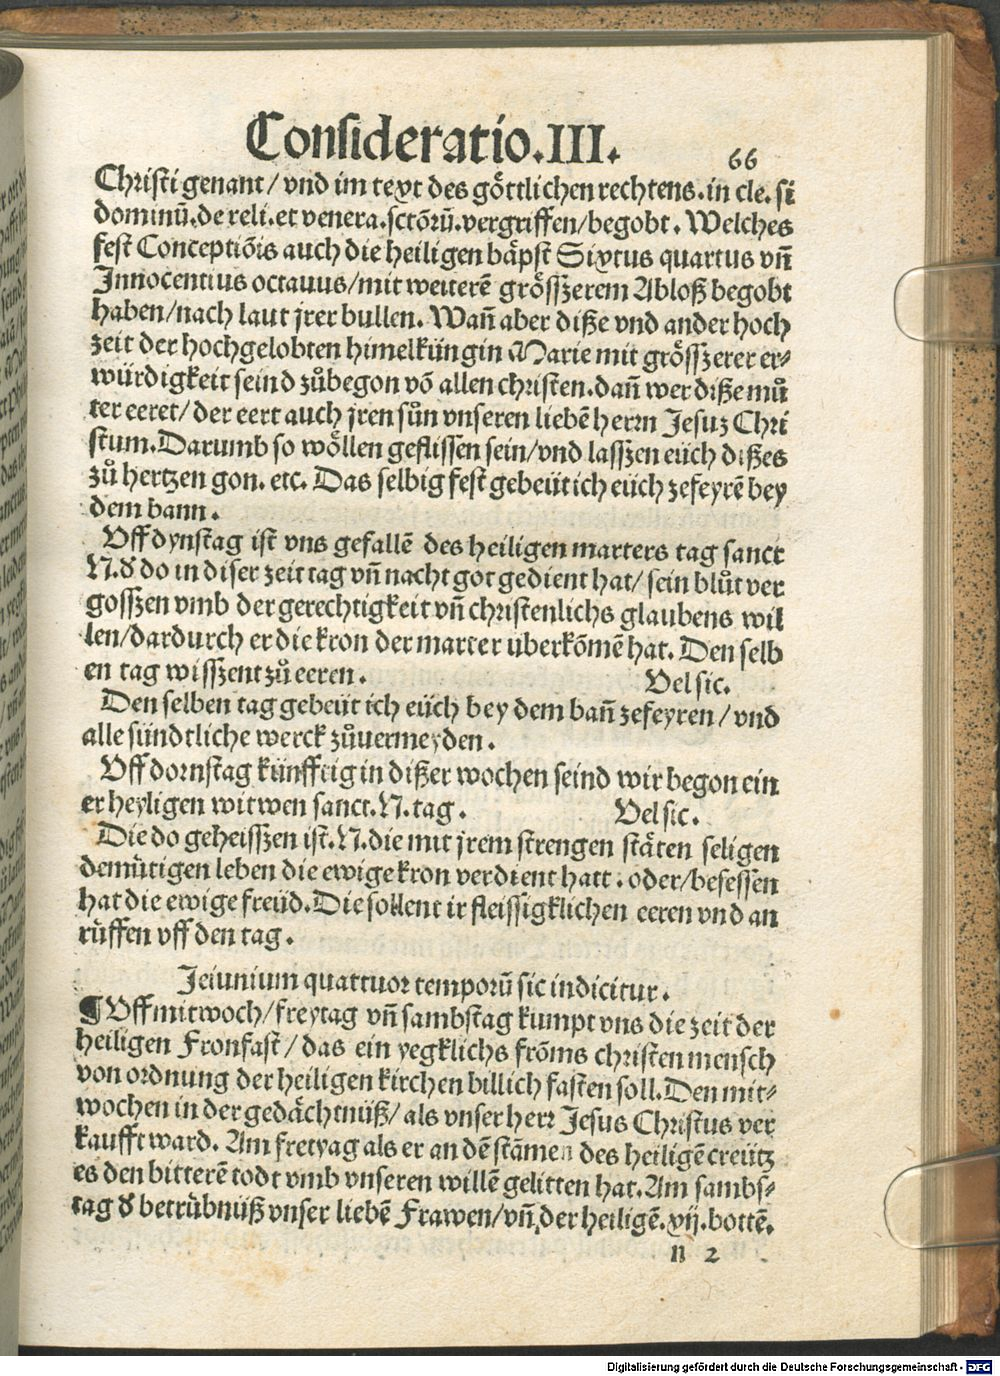 Consideratio.III.
66
Christi genant/ vnd im text des göttlichen rechtens.in cle. si
dominū.de reli.et venera.sctōrū.vergriffen/begobt. Welches
fest Conceptiōis auch die heiligen bäpst Sixtus quartus vñ
Innocentius octauus/mit weiterē grösszerem Abloß begobt
haben/nach laut jrer bullen. Wañ aber diße vnd ander hoch
zeit der hochgelobten himelküngin Marie mit grösszerer er-
würdigkeit seind zůbegon vō allen christen.dañ wer diße mů
ter eeret/ der eert auch jren sůn vnseren liebē herrn Jesuz Chri
stum.Darumb so wöllen geflissen sein/vnd lasszen eüch dißes
zů hertzen gon. etc. Das selbig fest gebeüt ich eüch zefeyrē bey
dem bann.
Vff dynstag ist vns gefallē des heiligen marters tag sanct
N.ꝺ do in diser zeit tag vñ nacht got gedient hat/ sein blůt ver
gosszen vmb der gerechtigkeit vñ christenlichs glaubens wil
len/dardurch er die kron der marter vberkōmē hat. Den selb
en tag wisszent zů eeren. Vel sic.
Den selben tag gebeüt ich eüch bey dem bañ zefeyren/vnd
alle sündtliche werck zůuermeyden.
Vff dornstag künfftig in dißer wochen seind wir begon ein
er heyligen witwen sanct.N.tag. Vel sic.
Die do geheisszen ist.N.die mit jrem strengen stäten seligen
demütigen leben die ewige kron verdient hatt. oder/besessen
hat die ewige freüd.Die sollent ir fleissigklichen eeren vnd an
rüffen vff den tag.
Jeiunium quattuor temporū sic indicitur.
¶ Vff mitwoch/freytag vñ sambstag kumpt vns die zeit der
heiligen Fronfast/das ein yegklichs frōms christen mensch
von ordnung der heiligen kirchen billich fasten soll.Den mit-
wochen in der gedächtnüß/ als vnser herr Jesus Christus ver
kaufft ward. Am fretyag als er an dē stāmen des heiligē creütz
es den bitterē todt vmb vnseren willē gelitten hat.Am sambs-
tag ꝺ betrübnüß vnser liebē Frawen/vñ der heiligē.xij.bottē.
n 2
Digitalisierung gefördert durch die Deutsche Forschungsgemeinschaft - DFG